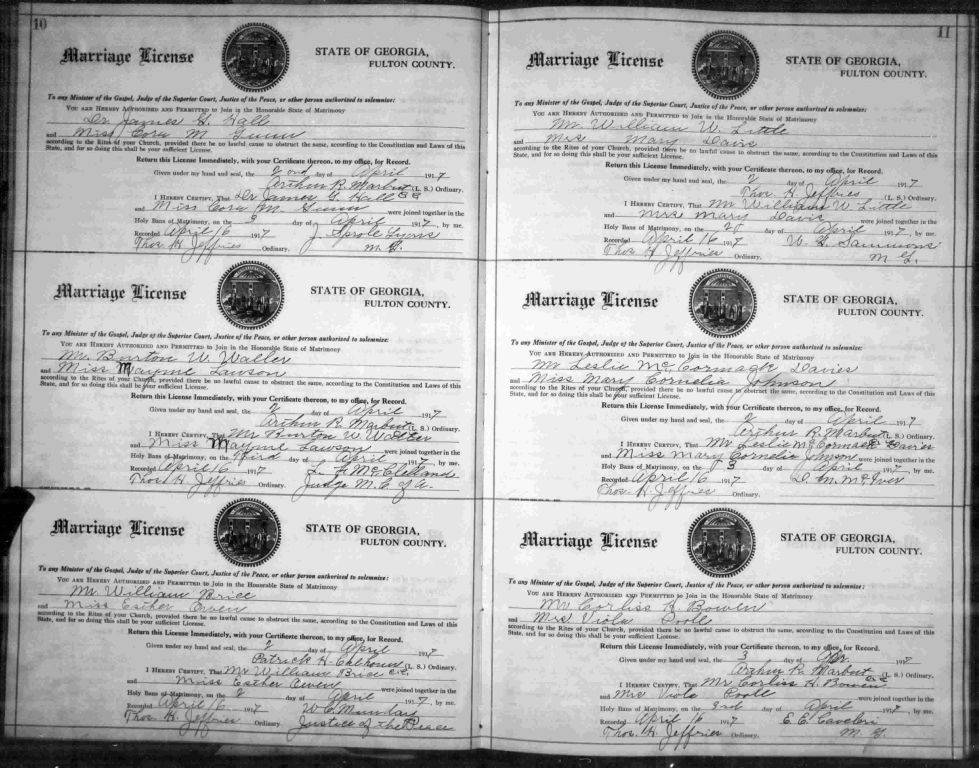 10
Marriage License
STATE OF GEORGIA,
FULTON COUNTY.
To any Minister of the Gospel, Judge of the Superior Court, Justice of the Peace, or other person authorized to solemnize:
You are Hereby Authorized and Permitted to Join in the Honorable State of Matrimony
Dr James G. Hall
and Miss Cora M. Gunn
according to the Rites of your Church, provided there be no lawful cause to obstruct the same, according to the Constitution and Laws of this
State, and for so doing this shall be your sufficient License.
Return this License Immediately, with your Certificate thereon, to my office, for Record.
Given under my hand and seal, the 2nd day of April 1917
Arthur R. Marbut (L. S.) Ordinary.
I Hereby Certify, That Dr James G. Hall
and Miss Cora M. Gunn were joined together in the
Holy Bans of Matrimony, on the 3 day of April 1917, by me.
Recorded April 16 1917 J. Sprole Lyons
Thos H. Jeffries Ordinary. M. G.
Marriage License
STATE OF GEORGIA,
FULTON COUNTY.
To any Minister of the Gospel, Judge of the Superior Court, Justice of the Peace, or other person authorized to solemnize:
You are Hereby Authorized and Permitted to Join in the Honorable State of Matrimony
Mr. Burton W. Waller
and Miss Mayme Lawson
according to the Rites of your Church, provided there be no lawful cause to obstruct the same, according to the Constitution and Laws of this
State, and for so doing this shall be your sufficient License.
Return this License Immediately, with your Certificate thereon, to my office, for Record.
Given under my hand and seal, the 2 day of April 1917
Arthur R. Marbut (L. S.) Ordinary.
I Hereby Certify, That Mr Burton W. Waller
and Miss Mayme Lawson were joined together in the
Holy Bans of Matrimony, on the Third day of April 1917, by me.
Recorded April 16 1917 L. F. McClelland
Thos H. Jeffries Ordinary. Judge M. C. of A.
Marriage License
STATE OF GEORGIA,
FULTON COUNTY.
To any Minister of the Gospel, Judge of the Superior Court, Justice of the Peace, or other person authorized to solemnize:
You are Hereby Authorized and Permitted to Join in the Honorable State of Matrimony
Mr. William Brice
and Miss Esther Owen
according to the Rites of your Church, provided there be no lawful cause to obstruct the same, according to the Constitution and Laws of this
State, and for so doing this shall be your sufficient License.
Return this License Immediately, with your Certificate thereon, to my office, for Record.
Given under my hand and seal, the 2 day of April 1917
Patrick H. Calhoun (L. S.) Ordinary.
I Hereby Certify, That Mr William Brice
and Miss Esther Owen were joined together in the
Holy Bans of Matrimony, on the 2 day of April 1917, by me.
Recorded April 16 1917 W. C. Munday
Thos H. Jeffries Ordinary Justice of the Peace
11
Marriage License
STATE OF GEORGIA,
FULTON COUNTY.
To any Minister of the Gospel, Judge of the Superior Court, Justice of the Peace, or other person authorized to solemnize:
You are Hereby Authorized and Permitted to Join in the Honorable State of Matrimony
Mr. William W. Little
and Mrs Mary Davis
according to the Rites of your Church, provided there be no lawful cause to obstruct the same, according to the Constitution and Laws of this
State, and for so doing this shall be your sufficient License.
Return this License Immediately, with your Certificate thereon, to my office, for Record.
Given under my hand and seal, the 2 day of April 1917
Thos. H. Jeffries (L. S.) Ordinary.
I Hereby Certify, That Mr William W Little
and Mrs Mary Davis were joined together in the
Holy Bans of Matrimony, on the day of April 1917, by me.
Recorded April 16 1917 Sammons
Thos H. Jeffries Ordinary. M. G.
Marriage License
STATE OF GEORGIA,
FULTON COUNTY.
To any Minister of the Gospel, Judge of the Superior Court, Justice of the Peace, or other person authorized to solemnize:
You are Hereby Authorized and Permitted to Join in the Honorable State of Matrimony
Mr Leslie McCormack Davies
and Miss Mary Cornelia Johnson
according to the Rites of your Church, provided there be no lawful cause to obstruct the same, according to the Constitution and Laws of this
State, and for so doing this shall be your sufficient License.
Return this License Immediately, with your Certificate thereon, to my office, for Record.
Given under my hand and seal, the 2 day of April 1917
Arthur R. Marbut (L. S.) Ordinary.
I Hereby Certify, That Mr Leslie McCormack Davies
and Miss Mary Cornelia Johnson were joined together in the
Holy Bans of Matrimony, on the 3 day of April 1917, by me.
Recorded April 16 1917 D. M. McIver
Thos. H. Jeffries Ordinary.
Marriage License
STATE OF GEORGIA,
FULTON COUNTY.
To any Minister of the Gospel, Judge of the Superior Court, Justice of the Peace, or other person authorized to solemnize:
You are Hereby Authorized and Permitted to Join in the Honorable State of Matrimony
Mr Corliss H. Bowen
and Mrs Viola Poole
according to the Rites of your Church, provided there be no lawful cause to obstruct the same, according to the Constitution and Laws of this
State, and for so doing this shall be your sufficient License.
Return this License Immediately, with your Certificate thereon, to my office, for Record.
Given under my hand and seal, the 3 day of Apr 1917
Arthur R. Marbut (L. S.) Ordinary.
I Hereby Certify, That Mr Corliss H. Bowen
and Mrs Viola Poole were joined together in the
Holy Bans of Matrimony, on the 3rd day of April 1917, by me.
Recorded April 16 1917 E. E.
Thos. H. Jeffries Ordinary. M. G.